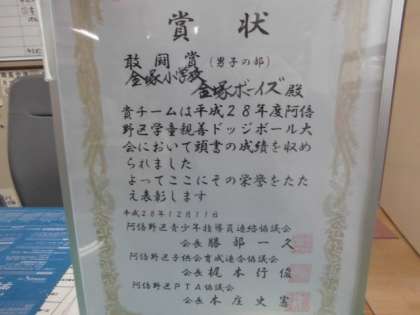 賞状
敢闘賞(男子の部)
金塚小学校
金塚ボーイズ殿
貴チームは平成28年度阿倍
野区学童親善ドッジボール大
会において頭書の成績を収め
られました
よってここにその栄誉をたた
え表彰します
平成28年12月11日
阿倍野区青少年指導員連絡協議会
会長 勝部一久
阿倍野区子供会育成連合協議会
会長 梶本行俊
阿倍野区PTA協議会
会長 本庄史憲